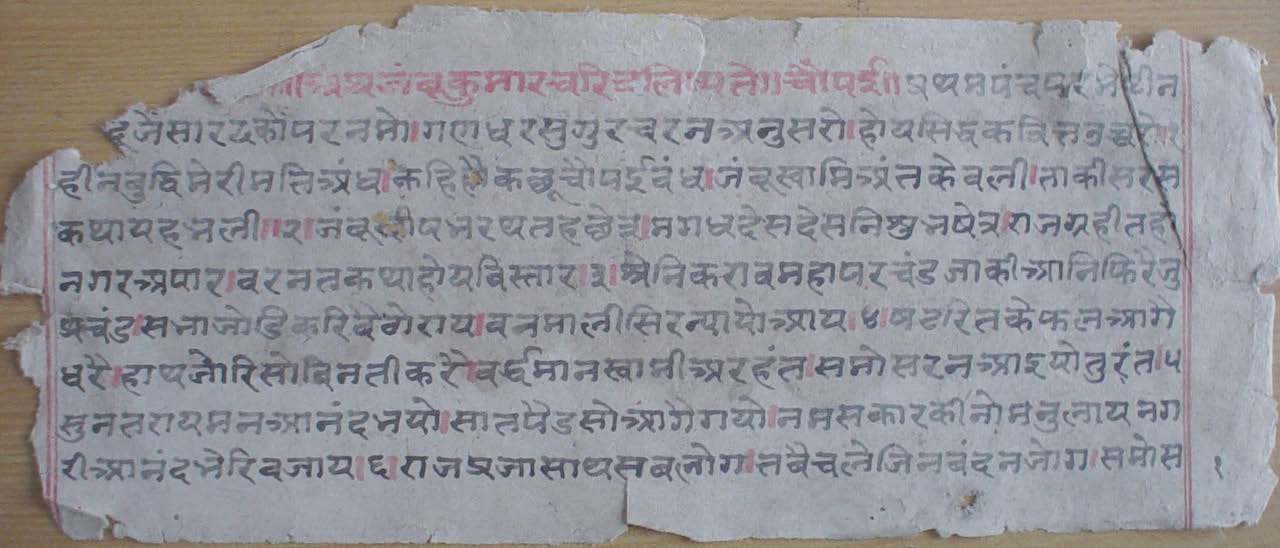 अथ जंबूकुमारचरित्र लिष्यते॥ चौपई॥ प्रथम पंच परमेष्टी न
इ जैं सारद कौं पर नमो। गणधर सुगुर चरन अनुसरो। होय सिद्ध कवित
हीन बुद्धि मेरी मति अंध। कहि हौ कछू चौपई बंध। जंबूस्वामि अंत केवली। ताकी सरस
कथा यह भली॥२। जंबूद्वीप भरथ तह छेत्र। मगध देस देसनि षेत्र। राजग्रही तहा
नगर अपार। वरनत कथा होय बिस्तार।३। श्रेनिक राव महा परचंड जाकी आनि फिरै जु
प्रचंड। सभा जोडि करि बैठो राय। वनमाली सिर न्यायो आय।४। षटरित के फल आगे
धरै। हाथ जोरि सो विनती करै। वर्द्धमान स्वामी अरहंत। समोसरन आइयो तुरंत।५
सुनत राय मन आनंद भयो। सात पैड सो आगै गयो। नमसकार कीनो मनु लाय नग
री आनंद भेरि वजाय।६। राज प्रजा साथ सब लोग। सबै चले जिन बंदन जोग। समोस
१